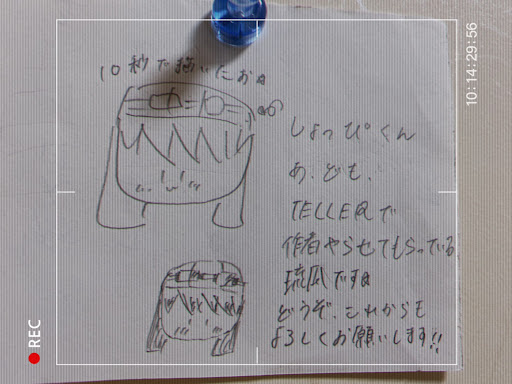 10秒で描いたお☆
しょっぴくん
あ、ども、
TELLERで
作者やらせてもらっている
琉凪です☆
どうぞ、これからも
よろしくお願いします!!
10:14:29:56
REC